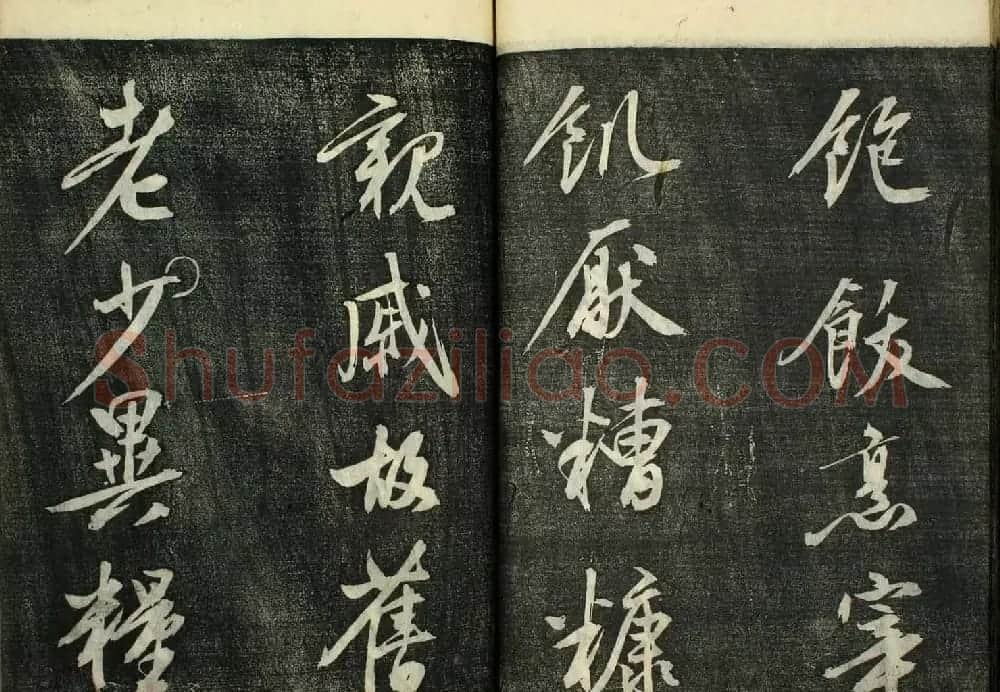 飽飫烹宰
飢厭糟糠
親戚故舊
老少異糧
Shufaziliao.COM